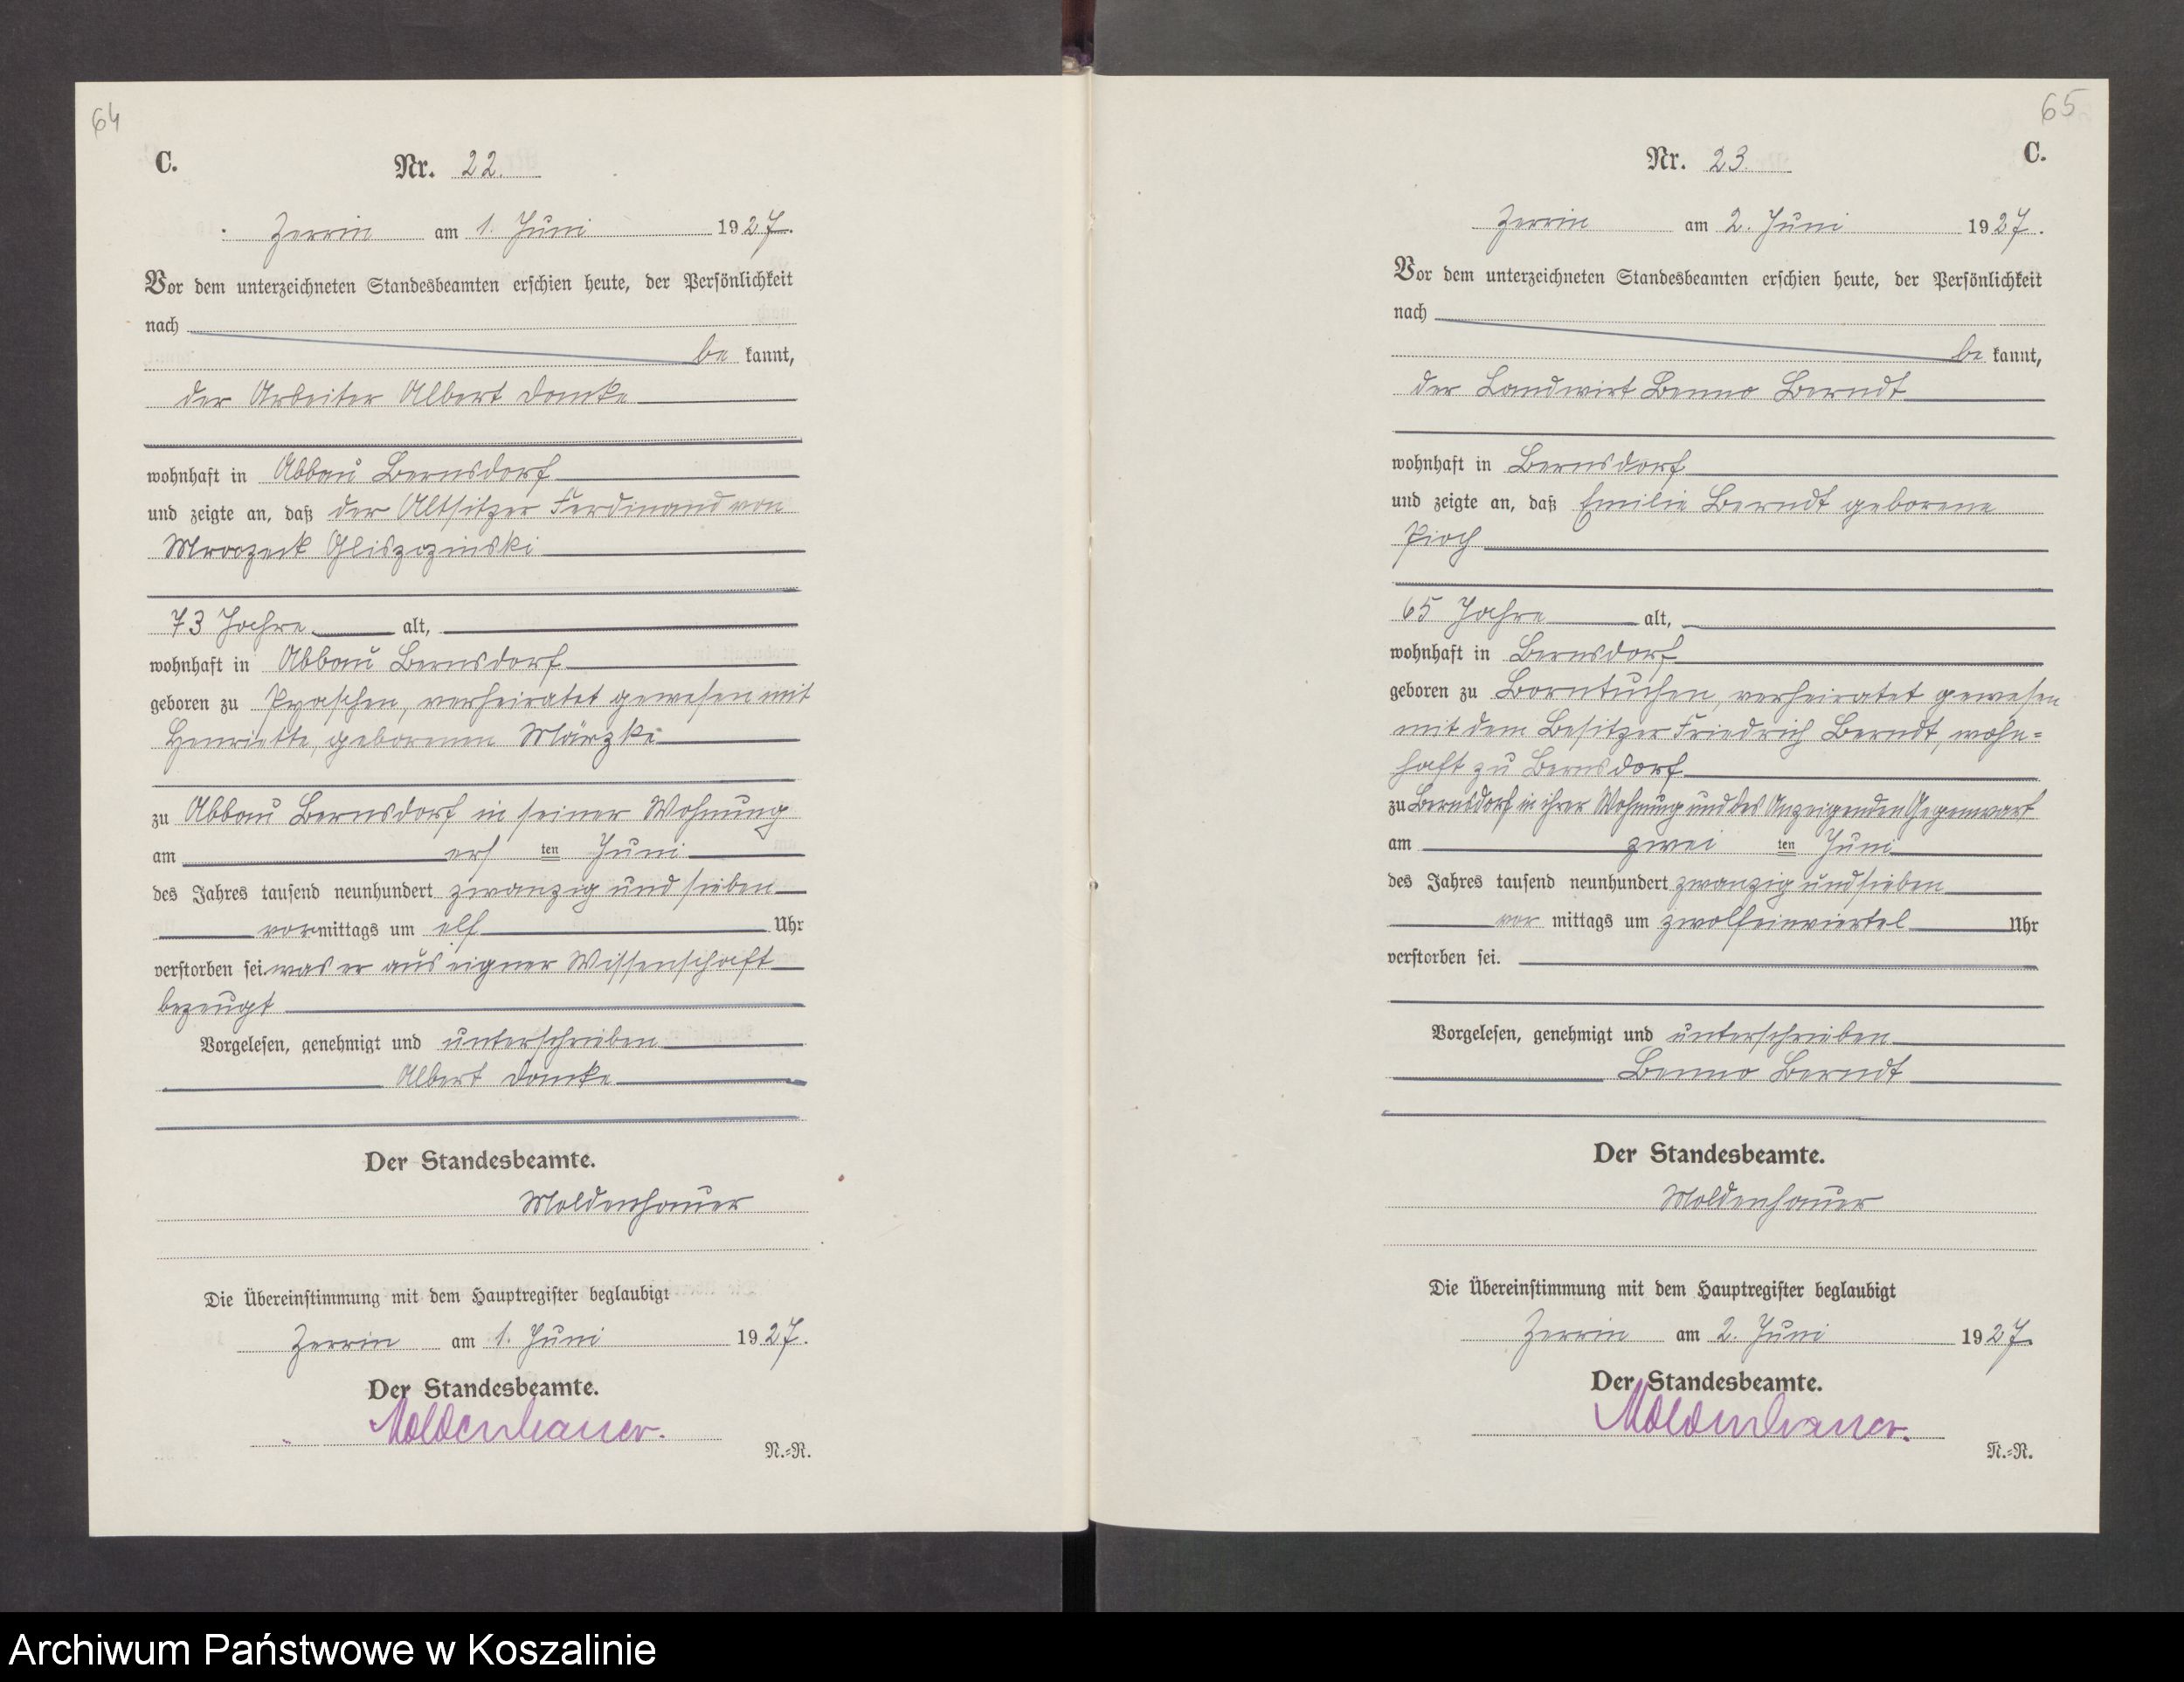 64
C.
Nr. 22.
Zerrin am 1. Juni 1927.
Vor dem unterzeichneten Standesbeamten erschien heute, der Persönlichkeit
nach
be kannt,
der Arbeiter Albert Damke
wohnhaft in Abbau Bernsdorf
und zeigte an, daß der Altsitzer Ferdinand von
Mroczeck Gliszczinski
73 Jahre alt,
wohnhaft in Abbau Bernsdorf
geboren zu Pyaschen, verheiratet gewesen mit
Henriette, geborenen Märzke
zu Abbau Bernsdorf in seiner Wohnung
am ers ten Juni
des Jahres tausend neunhundert zwanzig und sieben
vormittags um elf Uhr
verstorben sei. was er aus eigner Wissenschaft
bezeugt
Vorgelesen, genehmigt und unterschrieben
Albert Damke
Der Standesbeamte.
Moldenhauer
Die Übereinstimmung mit dem Hauptregister beglaubigt
Zerrin am 1. Juni 1927.
Der Standesbeamte.
Moldenhauer.
N.=R.
65
Nr. 23.
C.
Zerrin am 2. Juni 1927.
Vor dem unterzeichneten Standesbeamten erschien heute, der Persönlichkeit
nach
be kannt,
der Landwirt Benno Berndt
wohnhaft in Bernsdorf
und zeigte an, daß Emilie Berndt geborene
Pioch
65 Jahre alt,
wohnhaft in Bernsdorf
geboren zu Borntuchen, verheiratet gewesen
mit dem Besitzer Friedrich Berndt, wohn=
haft zu Bernsdorf
zu Bernsdorf in ihrer Wohnung und des Anzeigenden Gegenwart
am zwei ten Juni
des Jahres tausend neunhundert zwanzig und sieben
vor mittags um zwolfeinviertel Uhr
verstorben sei.
Vorgelesen, genehmigt und unterschrieben
Benno Berndt
Der Standesbeamte.
Moldenhauer
Die Übereinstimmung mit dem Hauptregister beglaubigt
Zerrin am 2. Juni 1927.
Der Standesbeamte.
Moldenhauer.
N.=R.
Archiwum Państwowe w Koszalinie